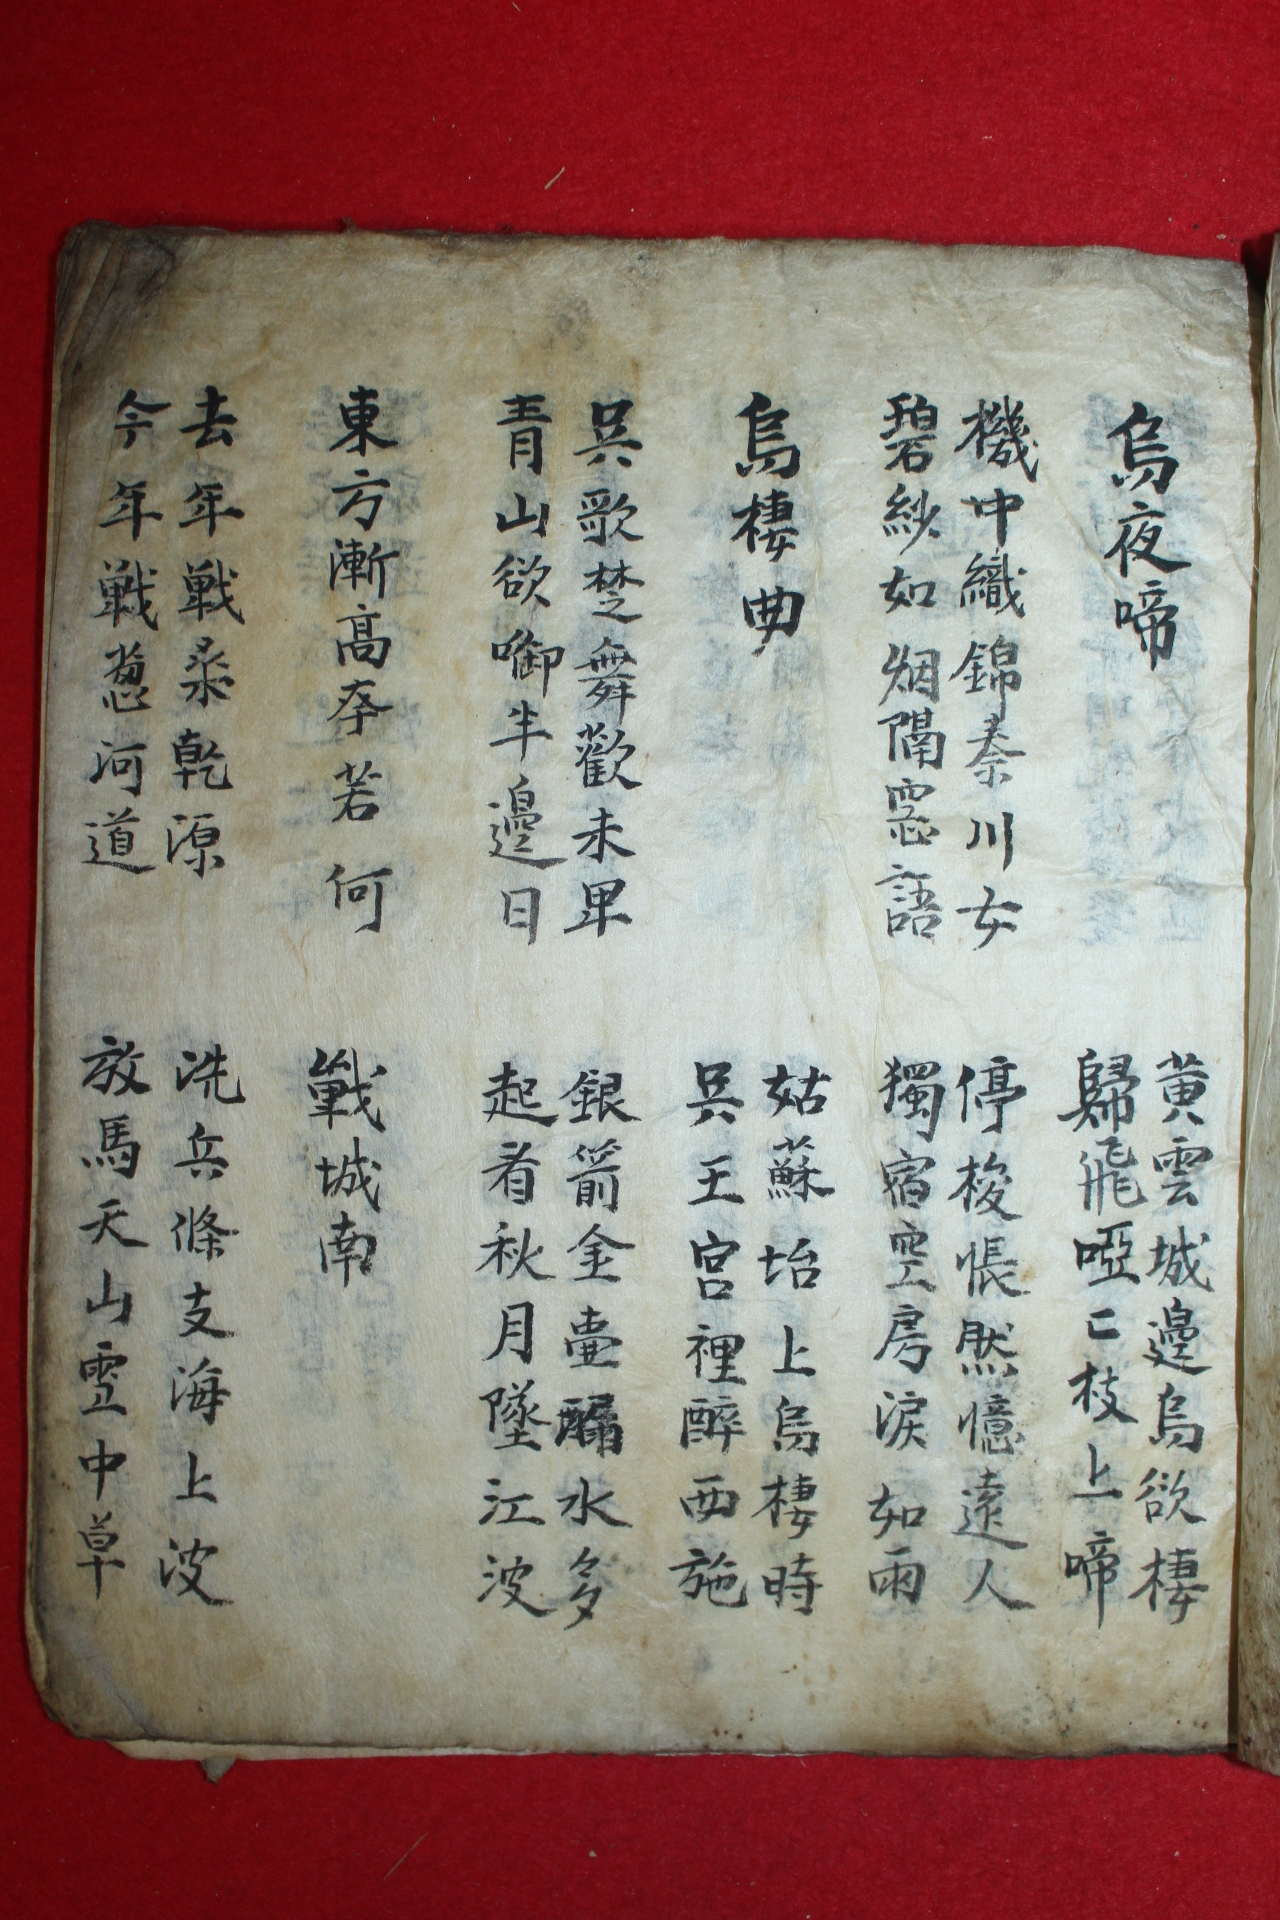 烏夜啼
黃雲城邊烏欲棲
歸飛啞〻枝上啼
機中織錦秦川女
停梭悵然憶遠人
碧紗如烟隔窓語
獨宿空房淚如雨
烏棲曲
姑蘇坮上烏棲時
吳王宮裡醉西施
吳歌楚舞歡未畢
銀箭金壺漏水多
青山欲啣半邊日
起看秋月墜江波
東方漸高奈若何
戰城南
去年戰桑乾源
洗兵條支海上波
今年戰葱河道
放馬天山雪中草